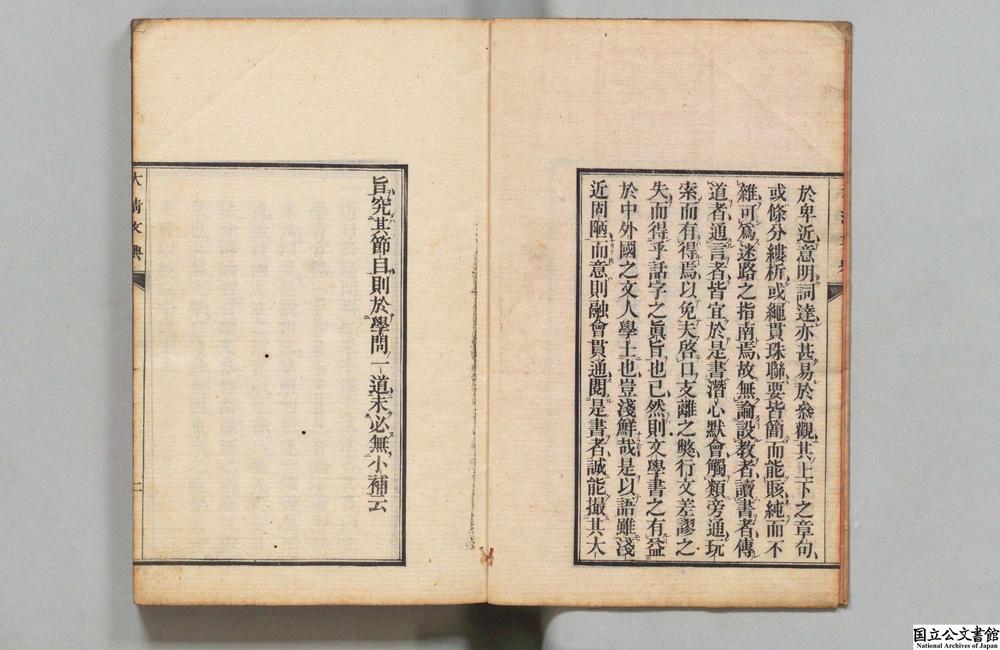 於卑近意明詞達亦甚易於叅觀其上下之章句、
或條分縷析、或繩貫珠聯、要皆簡而能賅、純而不
雜、可爲迷路之指南焉、故無論設教者、讀書者、傳
道者、通言者、皆宜於是書潛心默會、觸類旁通、玩
索而有得焉、以免夫啓口支離之獘、行文差謬之
失、而得乎話字之眞旨也、已然則文學書之有益
於中外國之文人學士也、豈淺鮮哉、是以語雖淺
近固陋、而意則融會貫通、閱是書者、誠能撮其大
旨、究其節目、則於學問一道、未必無小補云
大淸文典
二
国立公文書館
National Archives of Japan